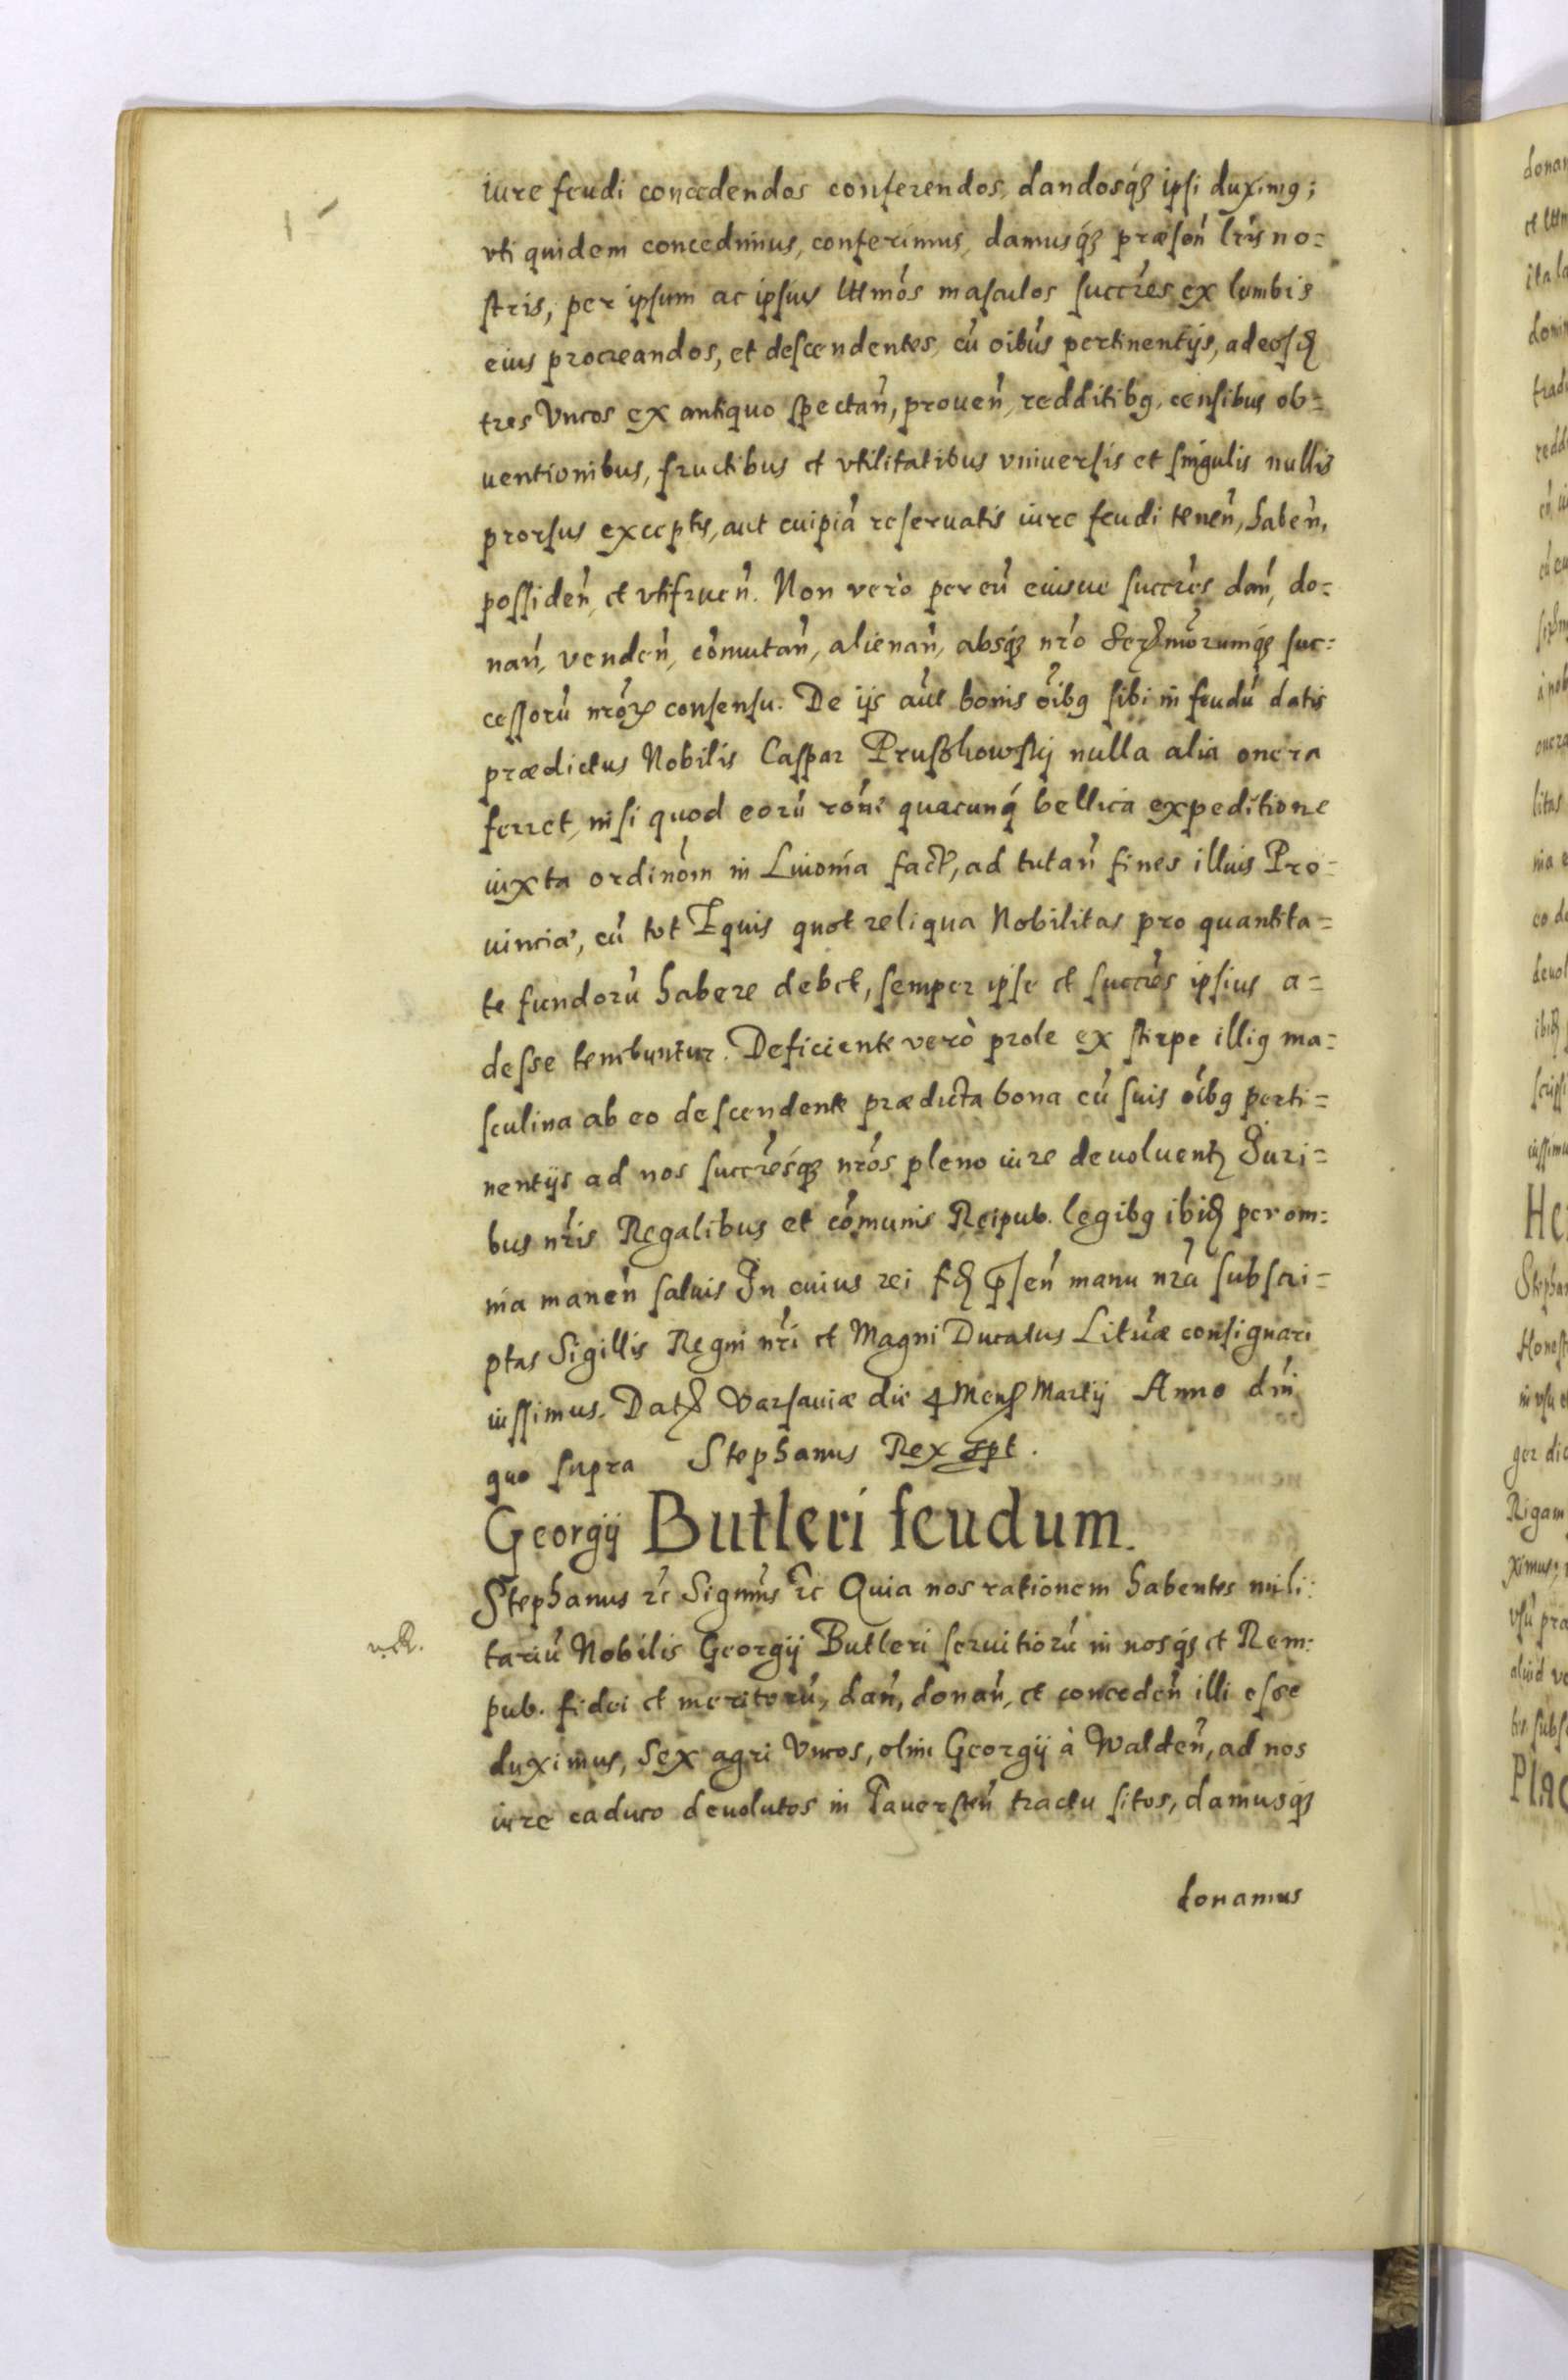 iure feudi concedendos conferendos, dandosq́ꝫ ipsi duximꝰ;
vti quidem concedimus, conferimus, damusq́ꝫ præsen̄ lr̃is no=
stris, per ipsum ac ipsius lttmõs masculos succr̃es ex lumbis
eius procreandos, et descendentes, cū oibūs pertinentijs, ad eosꝺ
tres Vncos ex antiquo spectan̄, prouen̄, redditibꝰ, censibus ob=
uentionibus, fructibus et vtilitatibus vniuersis et singulis nullis
prorsus exceptis, aut cuipiā reseruatis iure feudi tenen̄, haben̄,
possiden̄, et vtifruen̄. Non verò per eū eiusue succr̃es dan̄, do=
nan̄, venden̄, com̄utan̄, alienan̄, absq́ꝫ nr̃o Serꝫmõrumq́ꝫ suc=
cessorū nrõꝝ consensu. De ijs aūt bonis oībꝰ sibi in feudū datis
prædictus Nobilis Caspar Prusßkowskij nulla alia onera
ferret, nisi quod eorū rõne quacunq́ bellica expeditione
iuxta ordinõm in Liuonia fact̃, ad tutan̄ fines illius Pro=
uinciæ, cū tot Equis quot reliqua Nobilitas pro quantita=
te fundorū habere debet, semper ipse et succr̃es ipsius a=
desse tenebuntur. Deficiente verò prole ex stirpe illiꝰ ma=
sculina ab eo descendente prædicta bona cū suis oībꝰ perti=
nentijs ad nos succr̃esq́ꝫ nrõs pleno iure deuoluentꝫ Juri=
bus nr̃is Regalibus et com̄unis Reipub. legibꝰ ibiꝺ per om=
nia manen̄ saluis Jn cuius rei fꝺ p̄sen̄ manu nr̃a subscri=
ptas Sigillis Regni nr̃i et Magni Ducatus Lituæ consignari
iussimus. Datꝫ Varsauiæ die 4 Mensꝫ Martij Anno dn̄i
quo supra Stephanus Rex spt.
Georgij Butleri feudum.
Stephanus ꝛc Signm̃s ꝛc Quia nos rationem habentes mili=
tariū Nobilis Georgij Butleri seruitiorū in nosq́ꝫ et Rem=
pub. fidei et meritorū, dan̄, donan̄, et conceden̄ illi esse
duximus, Sex agri Vncos, olim Georgij à Walden̄, ad nos
iure caduco deuolutos in Pauersten̄ tractu sitos, damusq́ꝫ
donamus